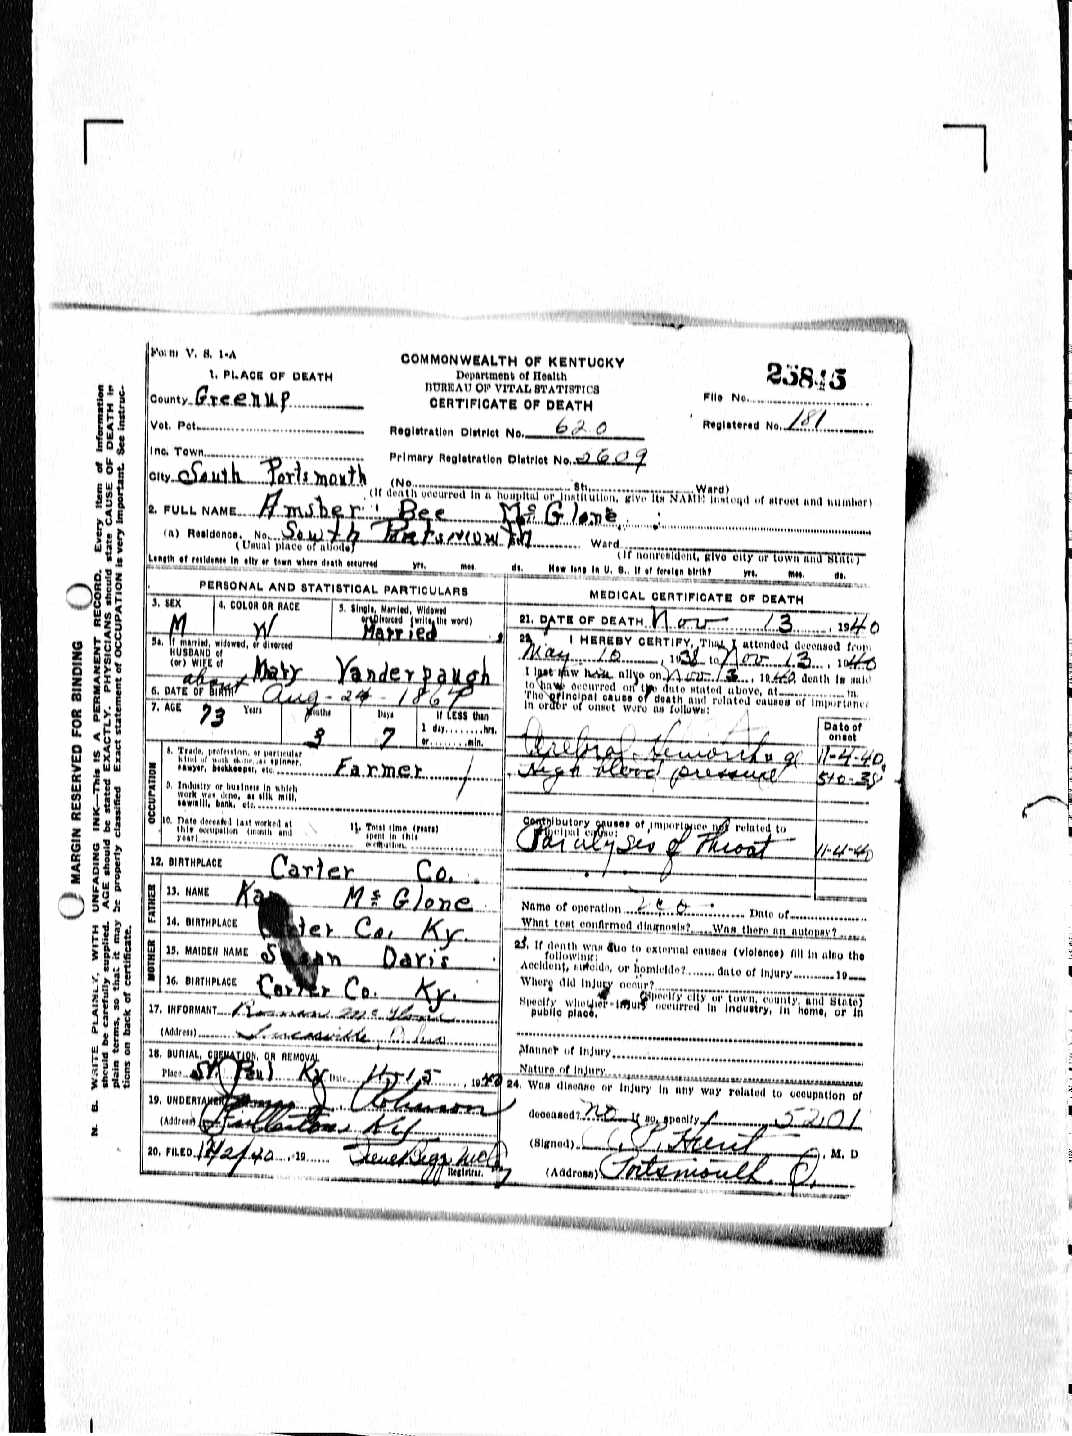 Form V. S. 1-A
COMMONWEALTH OF KENTUCKY
Department of Health
BUREAU OF VITAL STATISTICS
CERTIFICATE OF DEATH
25845
File No.
Registered No. 181
1. PLACE OF DEATH
County Greenup
Vot. Pct.
Registration District No. 620
Inc. Town
Primary Registration District No. 2609
City South Portsmouth
(No. St. Ward)
(If death occurred in a hospital or institution, give its NAME instead of street and number)
2. FULL NAME Amsber Bee McGlone
(a) Residence. No. South Portsmouth Ward
(Usual place of abode) (If nonresident, give city or town and State)
Length of residence in city or town where death occurred yrs. mos. ds. How long in U. S., if of foreign birth? yrs. mos. ds.
PERSONAL AND STATISTICAL PARTICULARS
3. SEX M
4. COLOR OR RACE W
5. Single, Married, Widowed or Divorced (write the word) Married
5a. If married, widowed, or divorced
HUSBAND of
(or) WIFE of Mary Vanderpaugh
6. DATE OF BIRTH about Aug-24-1867
7. AGE 73 Years 3 Months 7 Days If LESS than
1 day, hrs.
or min.
OCCUPATION
8. Trade, profession, or particular
kind of work done, as spinner,
sawyer, bookkeeper, etc. Farmer
9. Industry or business in which
work was done, as silk mill,
sawmill, bank, etc.
10. Date deceased last worked at
this occupation (month and
year)
11. Total time (years)
spent in this
occupation
12. BIRTHPLACE Carter Co.
FATHER
13. NAME McGlone
14. BIRTHPLACE Carter Co. Ky.
MOTHER
15. MAIDEN NAME Susan Davis
16. BIRTHPLACE Carter Co. Ky.
17. INFORMANT McGlone
(Address) Lucasville, Ohio
18. BURIAL, CREMATION, OR REMOVAL
Place St. Paul Ky Date 11-15, 1940
19. UNDERTAKER J. Robinson
(Address) Fullerton Ky
20. FILED 12/2/40, 19
Registrar.
MEDICAL CERTIFICATE OF DEATH
21. DATE OF DEATH Nov 13, 1940
22. I HEREBY CERTIFY, That I attended deceased from
May 10, 1938 to Nov 13, 1940
I last saw him alive on Nov 13, 1940, death is said
to have occurred on the date stated above, at m.
The principal cause of death and related causes of importance
in order of onset were as follows:
Date of onset
Cerebral Hemorrhage 11-4-40
High blood pressure 5-10-38
Contributory causes of importance not related to
principal cause:
Paralyses of Throat 11-4-40
Name of operation Date of
What test confirmed diagnosis? Was there an autopsy?
23. If death was due to external causes (violence) fill in also the
following:
Accident, suicide, or homicide? date of injury 19
Where did injury occur?
(Specify city or town, county, and State)
Specify whether injury occurred in industry, in home, or in
public place.
Manner of Injury
Nature of Injury
24. Was disease or injury in any way related to occupation of
deceased? No If so, specify 5201
(Signed) Hunt, M. D
(Address) Portsmouth O.
MARGIN RESERVED FOR BINDING
N. B. WRITE PLAINLY, WITH UNFADING INK—THIS IS A PERMANENT RECORD. Every item of information
should be carefully supplied. AGE should be stated EXACTLY. PHYSICIANS should state CAUSE OF DEATH in
plain terms, so that it may be properly classified. Exact statement of OCCUPATION is very important. See instruc-
tions on back of certificate.